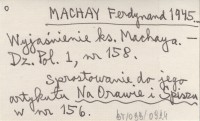 MACHAY Ferdynand 1945.
Wyjaśnienie ks. Machaya. -
Dz. Pol. 1, nr 158.
Sprostowanie do jego
artykułu Na Orawie i Spiszu
w nr 156.